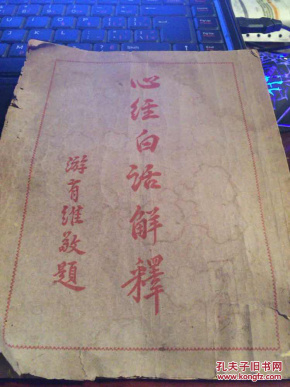 心经白话解释
游有维敬题
孔夫子旧书网